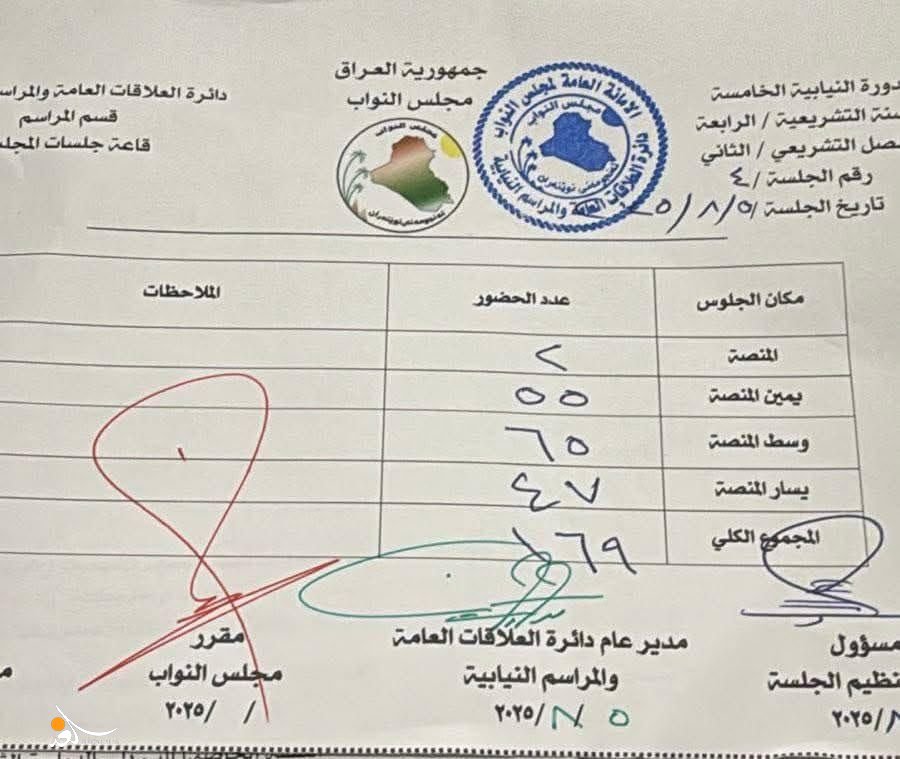 جمهورية العراق
مجلس النواب
دورة النيابية الخامسة
سنة التشريعية / الرابعة
صل التشريعي / الثاني
رقم الجلسة / ٤
تاريخ الجلسة / ٥ / ٨ / ٢٥
دائرة العلاقات العامة والمراس
قسم المراسم
قاعة جلسات المجل
الامانة العامة لمجلس النواب
مجلس النواب
دائرة العلاقات العامة والمراسم النيابية
مجلس النواب
مكان الجلوس عدد الحضور الملاحظات
المنصة ٢
يمين المنصة ٥٥
وسط المنصة ٦٥
يسار المنصة ٤٧
المجموع الكلي ١٦٩
مسؤول
نظيم الجلسة
٢٠٢٥/
مدير عام دائرة العلاقات العامة
والمراسم النيابية
٥ /٨ /٢٠٢٥
مقرر
مجلس النواب
/ /٢٠٢٥